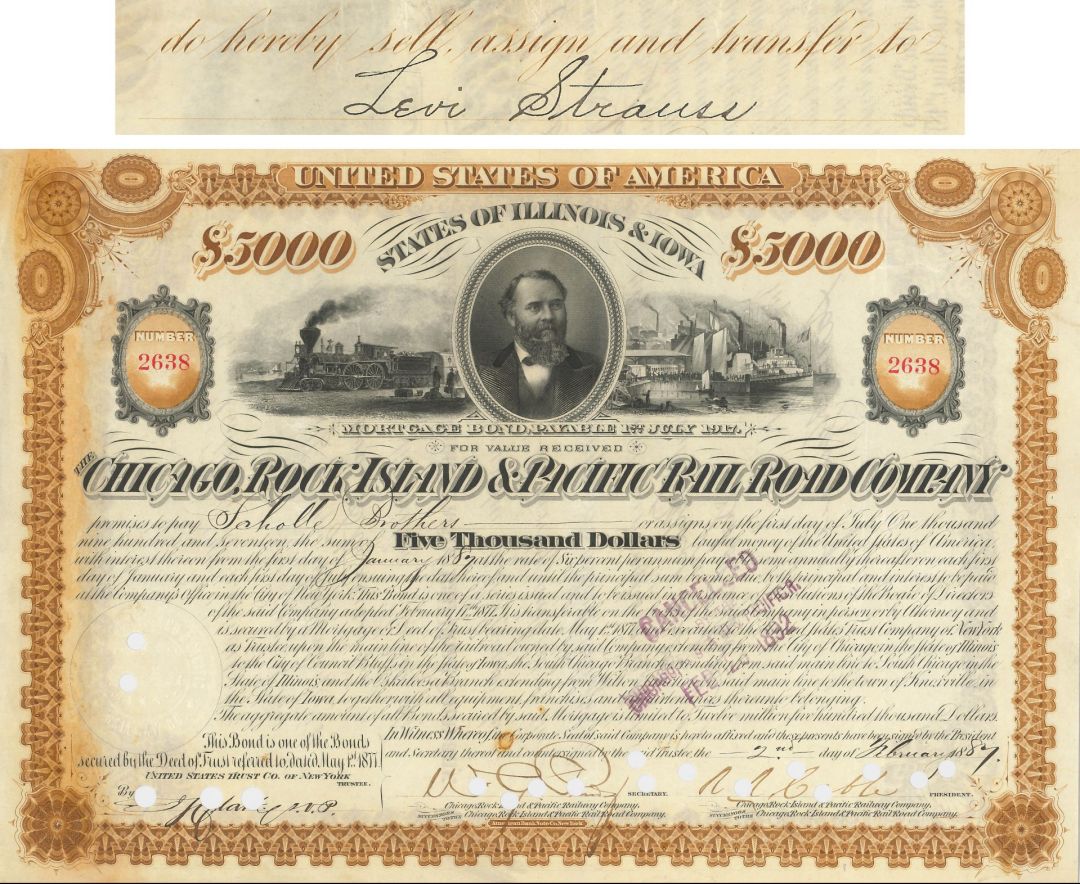 do hereby sell, assign and transfer to
Levi Strauss
UNITED STATES OF AMERICA
$5000 STATES OF ILLINOIS & IOWA $5000
NUMBER 2638
NUMBER 2638
MORTGAGE BOND, PAYABLE 1ST JULY 1917.
FOR VALUE RECEIVED
THE CHICAGO, ROCK ISLAND & PACIFIC RAIL ROAD COMPANY
promises to pay Scholle Brothers or assigns on the first day of July One thousand
nine hundred and seventeen, the sum of Five Thousand Dollars lawful money of the United States of America,
with interest thereon from the first day of January 1887 at the rate of Six per cent per annum payable semi-annually thereafter on the first
day of January and each first day of July ensuing the date hereof and the principal sum and interest to be paid
at the Company's Office in the City of New York. This Bond is one of a series issued and to be issued in of Resolutions of the Board of Directors
of the said Company adopted February 17th 1877. It is transferable on the in person or by Attorney and
is secured by a Mortgage or Deed of Trust bearing date, May 1st 1877 executed to the United States Trust Company of New York
as Trustee upon the main line of the railroad owned by said Company extending from the City of Chicago in the State of Illinois
to the City of Council Bluffs in the State of Iowa, the South Chicago Branch from said main line to South Chicago in the
State of Illinois and the Oskaloosa Branch extending from Wilton on said main line to the town of Knoxville in
the State of Iowa, together with all equipment, franchises and thereunto belonging.
The aggregate amount of all Bonds secured by said Mortgage is limited to Twelve million five hundred thousand Dollars
In Witness Whereof the Corporate Seal of said Company is hereto affixed and these presents have been signed by the President
and Secretary thereof and countersigned by the said Trustee, the 2nd day of February 1887.
CANCELLED
FEB 1892
This Bond is one of the Bonds
secured by the Deed of Trust referred to, dated, May 1st 1877.
UNITED STATES TRUST CO. OF NEW YORK
TRUSTEE.
By V.P.
SECRETARY.
Chicago, Rock Island & Pacific Railway Company,
SUCCESSORS TO THE Chicago, Rock Island & Pacific Rail Road Company.
PRESIDENT.
Chicago, Rock Island & Pacific Railway Company,
SUCCESSORS TO THE Chicago, Rock Island & Pacific Rail Road Company.
American Bank Note Co. New York